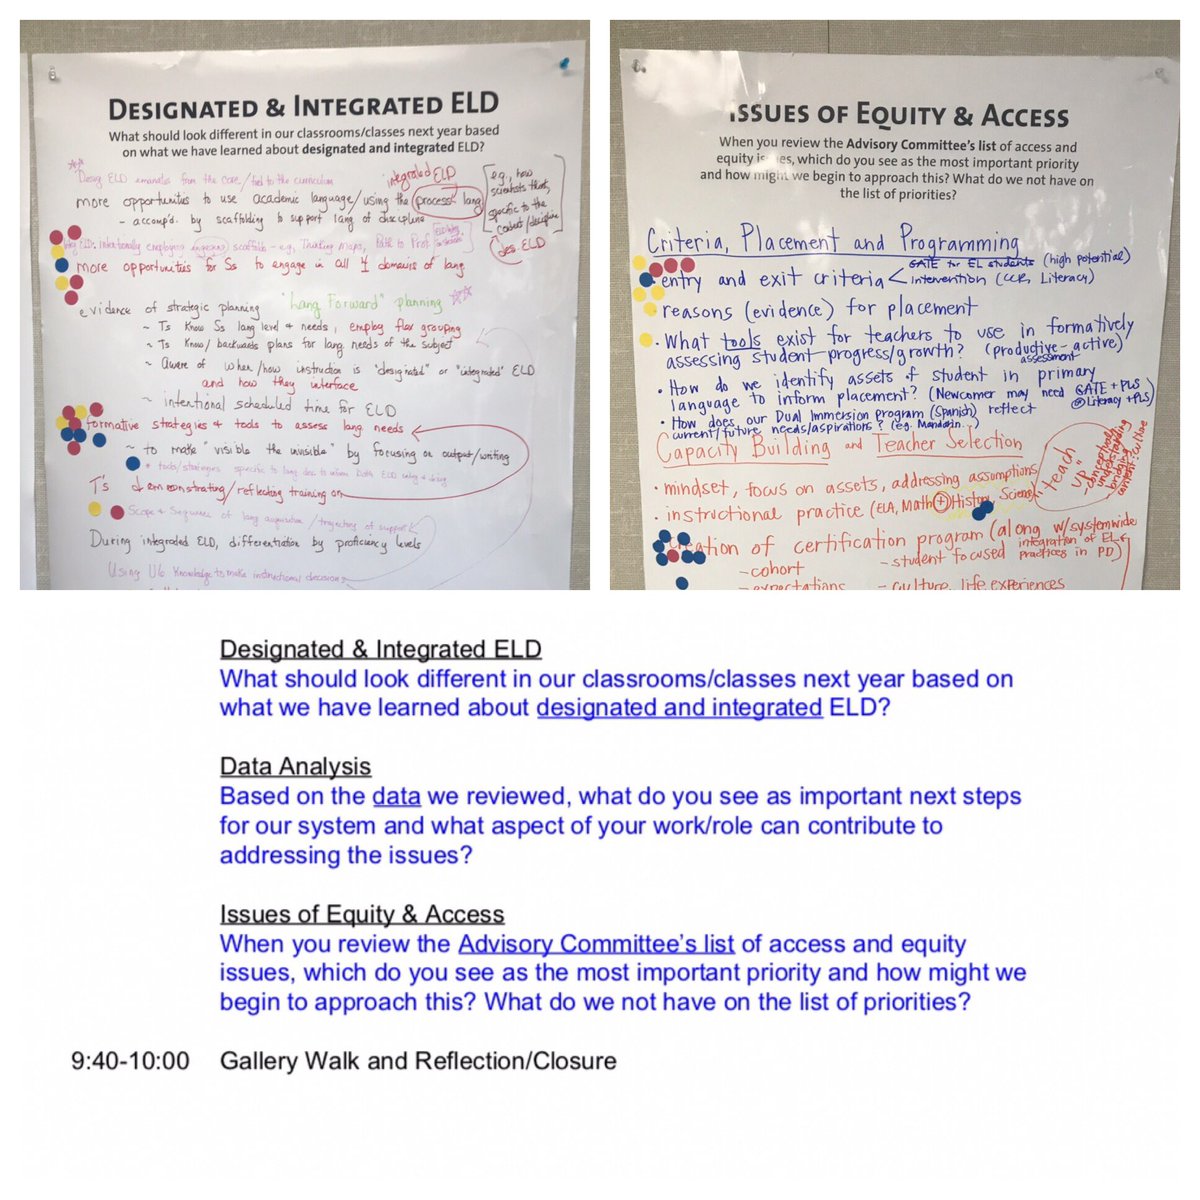 DESIGNATED & INTEGRATED ELD
What should look different in our classrooms/classes next year based
on what we have learned about designated and integrated ELD?
Desig ELD emanates from the core/tied to the curriculum
integrated ELD
more opportunities to use academic language/using the process lang
- accomp'd. by scaffolding to support lang of discipline
[e.g., how
scientists think,
specific to the
content/discipline]
des. ELD
intentionally employs scaffolds - e.g., Thinking Maps, Path to Prof
more opportunities for Ss to engage in all 4 domains of lang
evidence of strategic planning "Lang Forward" planning
~ Ts know Ss lang level & needs, employ flex grouping
~ Ts know/backwards plans for lang needs of the subject
~ Aware of when/how instruction is "designated" or "integrated" ELD
and how they interface
~ intentional scheduled time for ELD
formative strategies & tools to assess lang needs
~ to make "visible the invisible" by focusing on output/writing
* tools/strategies specific to lang dev. to inform
T's demonstrating/reflecting training on
Scope & Sequence of lang acquisition/trajectory of support
During integrated ELD, differentiation by proficiency levels
Using knowledge to make instructional decisions
ISSUES OF EQUITY & ACCESS
When you review the Advisory Committee's list of access and
equity issues, which do you see as the most important priority
and how might we begin to approach this? What do we not have on
the list of priorities?
Criteria, Placement and Programming
GATE for EL students (high potential)
• entry and exit criteria < intervention (CCR, Literacy)
• reasons (evidence) for placement
• What tools exist for teachers to use in formatively
assessing student progress/growth? (productive-active)
assessment
• How do we identify assets of student in primary
language to inform placement? (Newcomer may need GATE + PLS
@Literacy + PLS)
• How does our Dual Immersion program (Spanish) reflect
current/future needs/aspirations? (e.g. Mandarin..)
Capacity Building and Teacher Selection
• mindset, focus on assets, addressing assumptions
• instructional practice (ELA, Math + History, Science)
"teach up"
- conceptual
understanding
bridging
content: culture
Creation of certification program (along w/systemwide
integration of EL &
practices in PD)
- cohort
- student focused
- expectations
- culture, life experiences
Designated & Integrated ELD
What should look different in our classrooms/classes next year based on
what we have learned about designated and integrated ELD?
Data Analysis
Based on the data we reviewed, what do you see as important next steps
for our system and what aspect of your work/role can contribute to
addressing the issues?
Issues of Equity & Access
When you review the Advisory Committee's list of access and equity
issues, which do you see as the most important priority and how might we
begin to approach this? What do we not have on the list of priorities?
9:40-10:00 Gallery Walk and Reflection/Closure